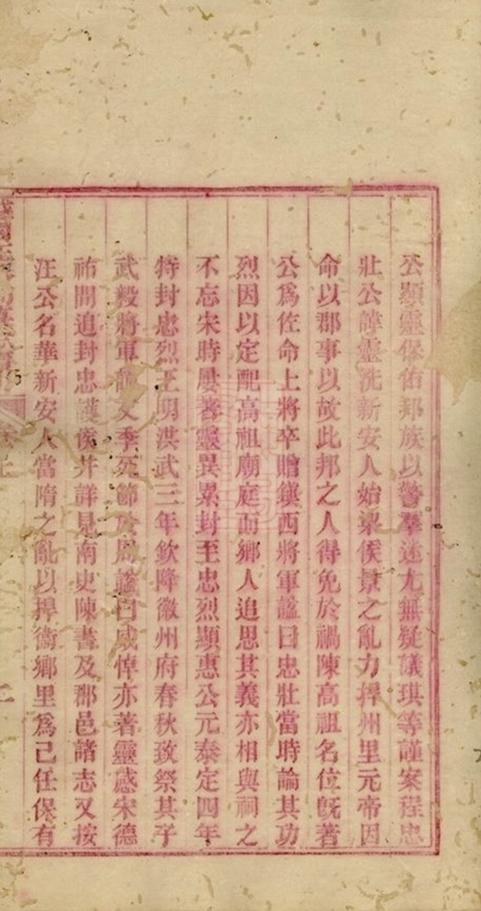 公顯靈保佑邦族以警羣迷尤無疑議琪等謹案程忠
壯公諱靈洗新安人始梁侯景之亂力捍州里元帝因
命以郡事以故此邦之人得免於禍陳高祖名位旣著
公爲佐命上將卒贈鎭西將軍諡曰忠壯當時論其功
烈因以定配高祖廟庭而鄉人追思其義亦相與祠之
不忘宋時屢著靈異累封至忠烈顯惠公元泰定四年
特封忠烈王明洪武三年欽降徽州府春秋致祭其子
武毅將軍諱文季死節於周諡曰威悼亦著靈感宋德
祐間追封忠護侯幷詳見南史陳書及郡邑諸志又按
汪公名華新安人當隋之亂以捍衞鄉里爲己任保有